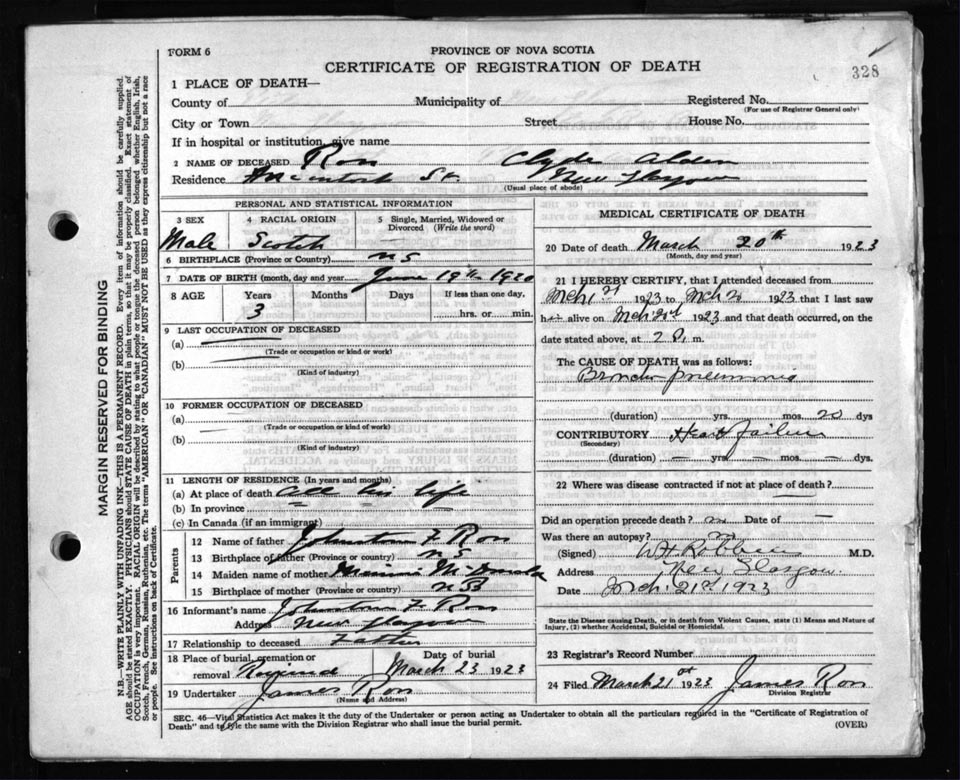 FORM 6
PROVINCE OF NOVA SCOTIA
CERTIFICATE OF REGISTRATION OF DEATH
328
1 PLACE OF DEATH—
County of Municipality of Registered No.
(For use of Registrar General only)
City or Town Street House No.
If in hospital or institution, give name
2 NAME OF DECEASED Ross Clyde Alden
Residence McIntosh St. New Glasgow
(Usual place of abode)
PERSONAL AND STATISTICAL INFORMATION
3 SEX 4 RACIAL ORIGIN 5 Single, Married, Widowed or Divorced (Write the word)
Male Scotch —
6 BIRTHPLACE (Province or Country) N S
7 DATE OF BIRTH (month, day and year) June 19th 1920
8 AGE Years Months Days If less than one day,
3 hrs. or min.
9 LAST OCCUPATION OF DECEASED
(a)
(Trade or occupation or kind or work)
(b)
(Kind of industry)
10 FORMER OCCUPATION OF DECEASED
(a)
(Trade or occupation or kind or work)
(b)
(Kind of industry)
11 LENGTH OF RESIDENCE (In years and months)
(a) At place of death all his life
(b) In province
(c) In Canada (if an immigrant)
Parents
12 Name of father Johnston F Ross
13 Birthplace of father (Province or country) N S
14 Maiden name of mother Minnie McDonald
15 Birthplace of mother (Province or country) N B
16 Informant's name Johnston F Ross
Address New Glasgow
17 Relationship to deceased Father
18 Place of burial, cremation or removal Date of burial
March 23 1923
19 Undertaker James Ross
(Name and Address)
MEDICAL CERTIFICATE OF DEATH
20 Date of death March 20th 1923
(Month, day and year)
21 I HEREBY CERTIFY, that I attended deceased from
Mch 1st 1923 to Mch 20 1923 that I last saw
h im alive on Mch 20th 1923 and that death occurred, on
date stated above, at 2 P. m.
The CAUSE OF DEATH was as follows:
Broncho pneumonia
(duration) yrs. mos. 20 dys
CONTRIBUTORY Heart failure
(Secondary)
(duration) — yrs — mos. — dys.
22 Where was disease contracted if not at place of death? —
Did an operation precede death? no Date of —
Was there an autopsy? no
(Signed) M.D.
Address New Glasgow.
Date Mch. 21st 1923
State the Disease causing Death, or in death from Violent Causes, state (1) Means and Nature of
Injury, (2) whether Accidental, Suicidal or Homicidal.
23 Registrar's Record Number
24 Filed March 21st 1923 James Ross
Division Registrar
SEC. 46—Vital Statistics Act makes it the duty of the Undertaker or person acting as Undertaker to obtain all the particulars required in the "Certificate of Registration of
Death" and to file the same with the Division Registrar who shall issue the burial permit.
(OVER)
MARGIN RESERVED FOR BINDING
N.B.—WRITE PLAINLY WITH UNFADING INK—THIS IS A PERMANENT RECORD. Every item of information should be carefully supplied.
AGE should be stated EXACTLY. PHYSICIANS should STATE CAUSE OF DEATH in plain terms, so that it may be properly classified. Exact statement of
OCCUPATION is very important. RACIAL ORIGIN will be described by stating to what people or tongue the deceased person belonged whether English, Irish,
Scotch, French, German, Russian, Ruthenian, etc. The terms "AMERICAN" OR "CANADIAN" MUST NOT BE USED as they express citizenship but not a race
or people. See instructions on back of Certificate.